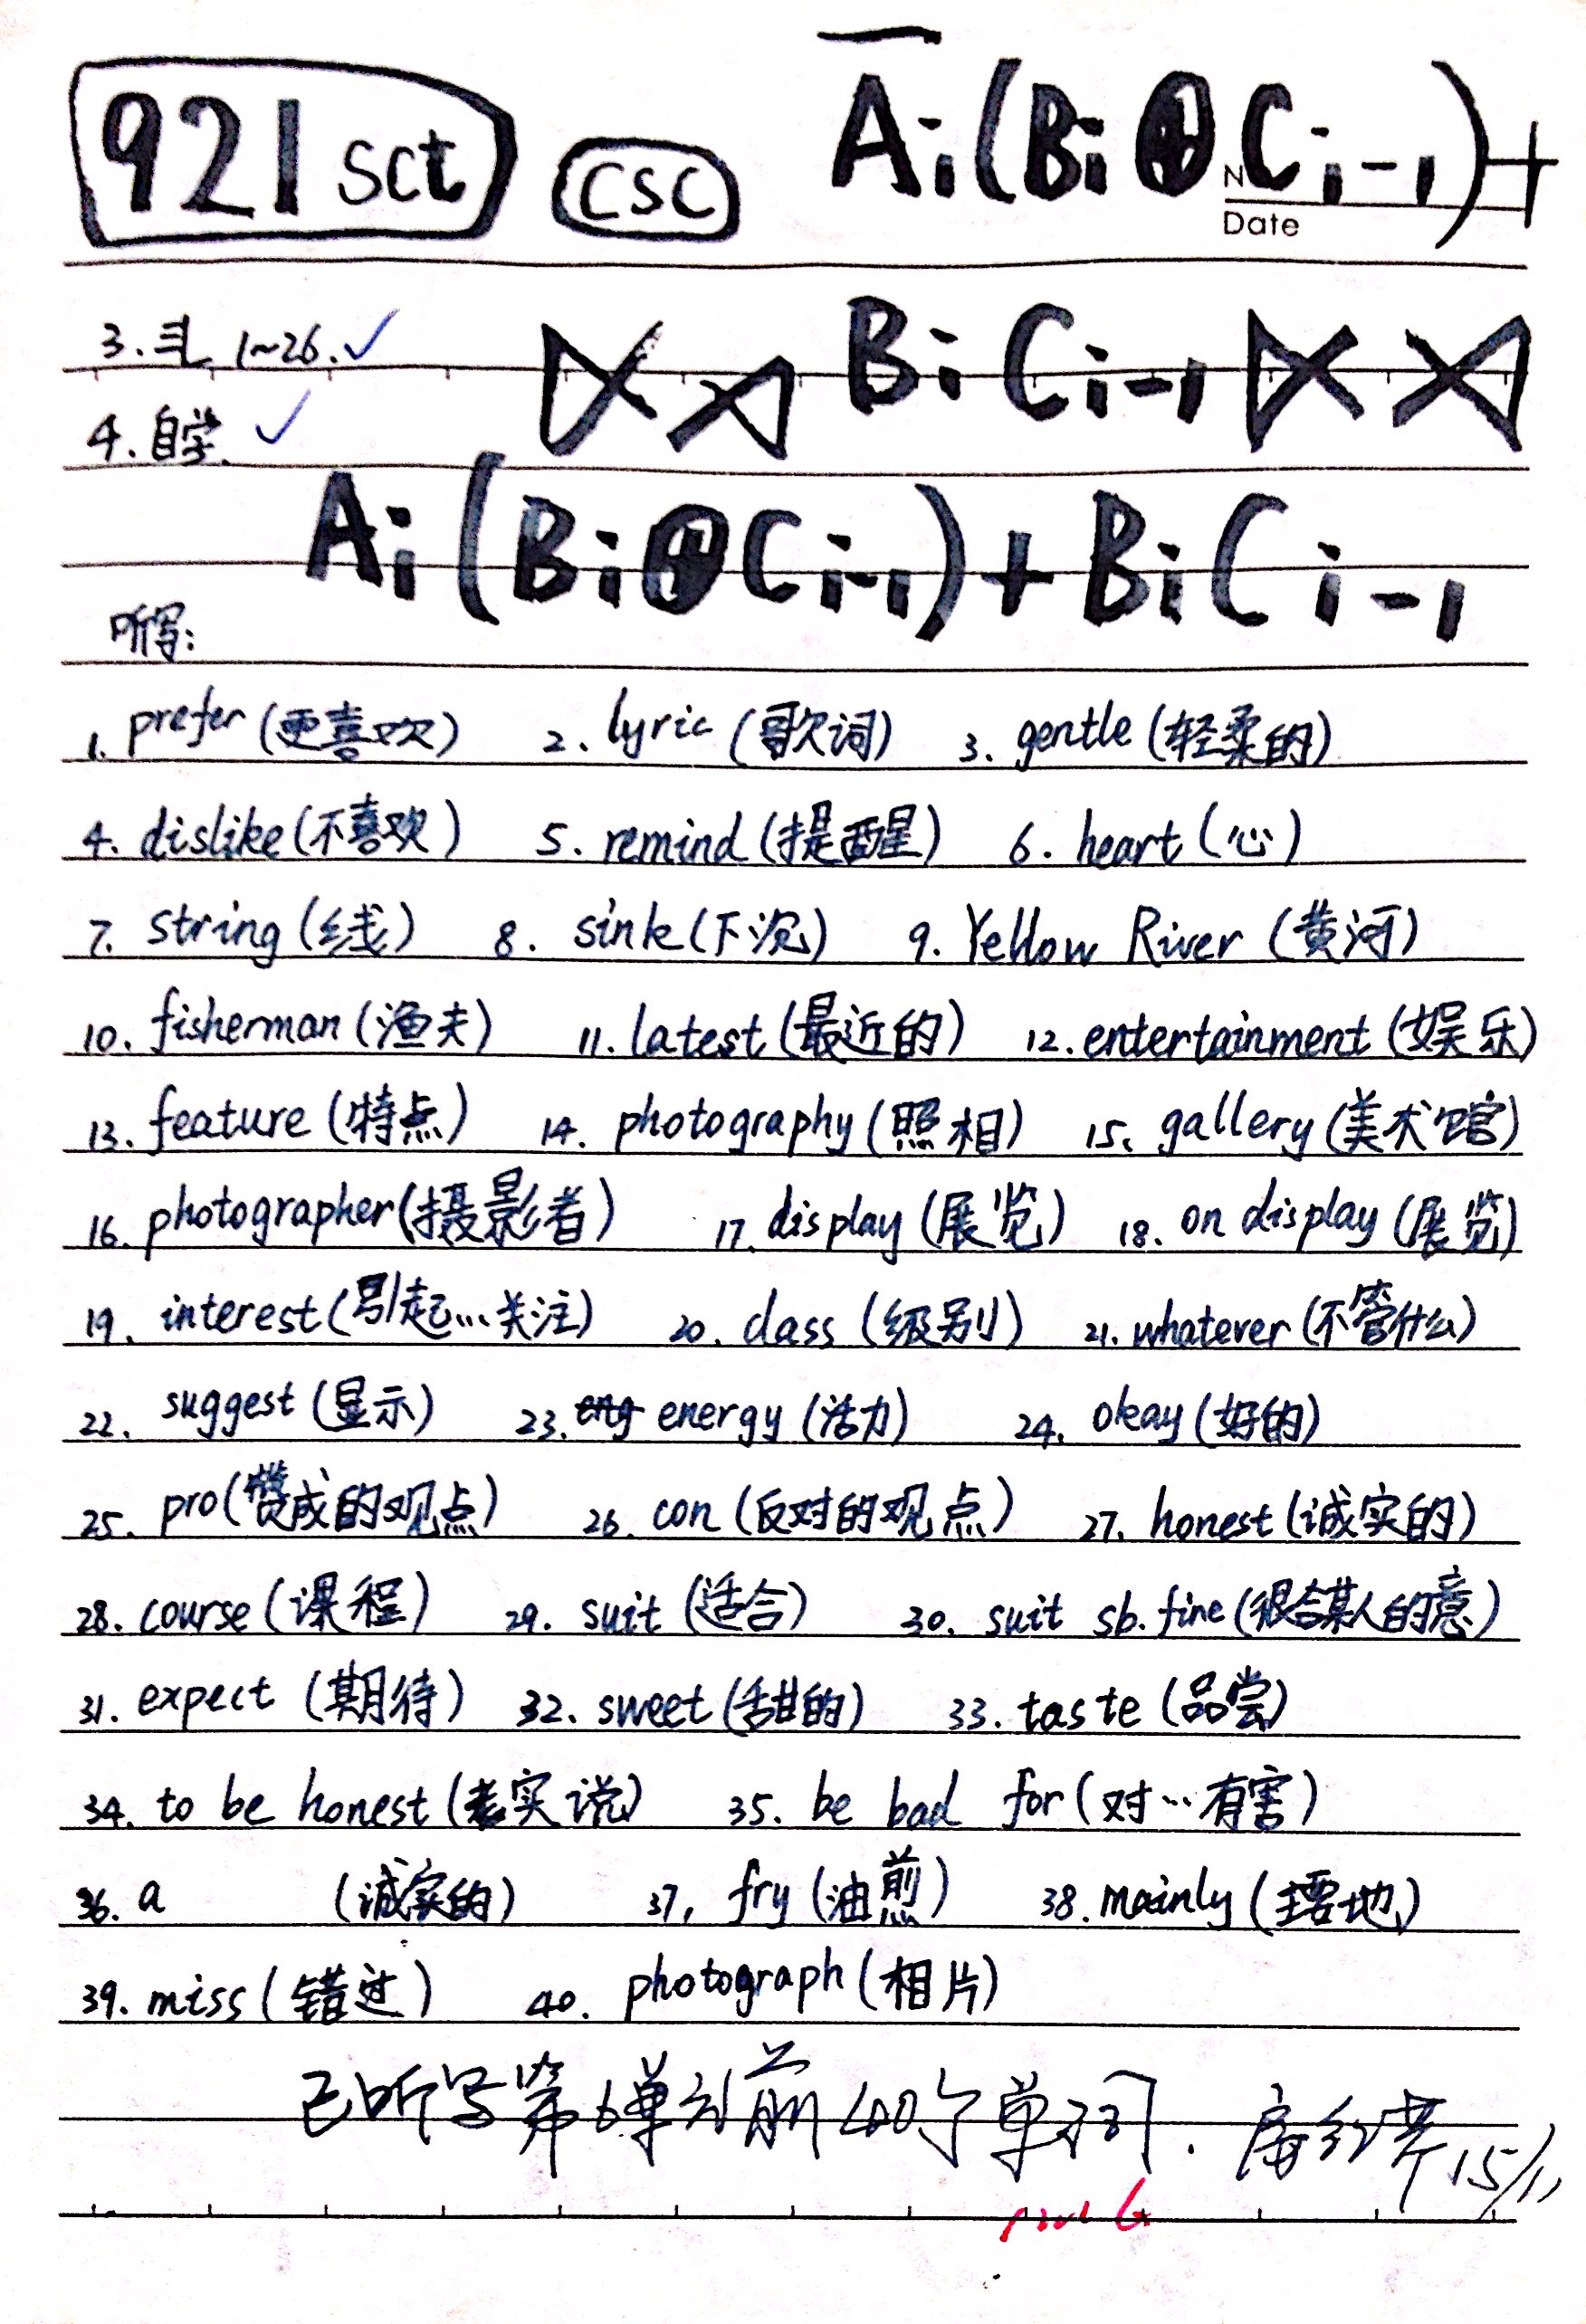 921 sct CSC Ai(Bi⊕Ci-1)+
No
Date
3. 1~26. ✓
BiCi-1
4. 自学. ✓
Ai(Bi⊕Ci-1)+BiCi-1
听写:
1. prefer (更喜欢) 2. lyric (歌词) 3. gentle (轻柔的)
4. dislike (不喜欢) 5. remind (提醒) 6. heart (心)
7. string (线) 8. sink (下沉) 9. Yellow River (黄河)
10. fisherman (渔夫) 11. latest (最近的) 12. entertainment (娱乐)
13. feature (特点) 14. photography (照相) 15. gallery (美术馆)
16. photographer (摄影者) 17. display (展览) 18. on display (展览)
19. interest (引起…关注) 20. class (级别) 21. whatever (不管什么)
22. suggest (显示) 23. energy (活力) 24. okay (好的)
25. pro (赞成的观点) 26. con (反对的观点) 27. honest (诚实的)
28. course (课程) 29. suit (适合) 30. suit sb. fine (很合某人的意)
31. expect (期待) 32. sweet (甜的) 33. taste (品尝)
34. to be honest (老实说) 35. be bad for (对…有害)
36. a (诚实的) 37. fry (油煎) 38. mainly (主要地)
39. miss (错过) 40. photograph (相片)
已听写第6单元前40个单词. 15/11